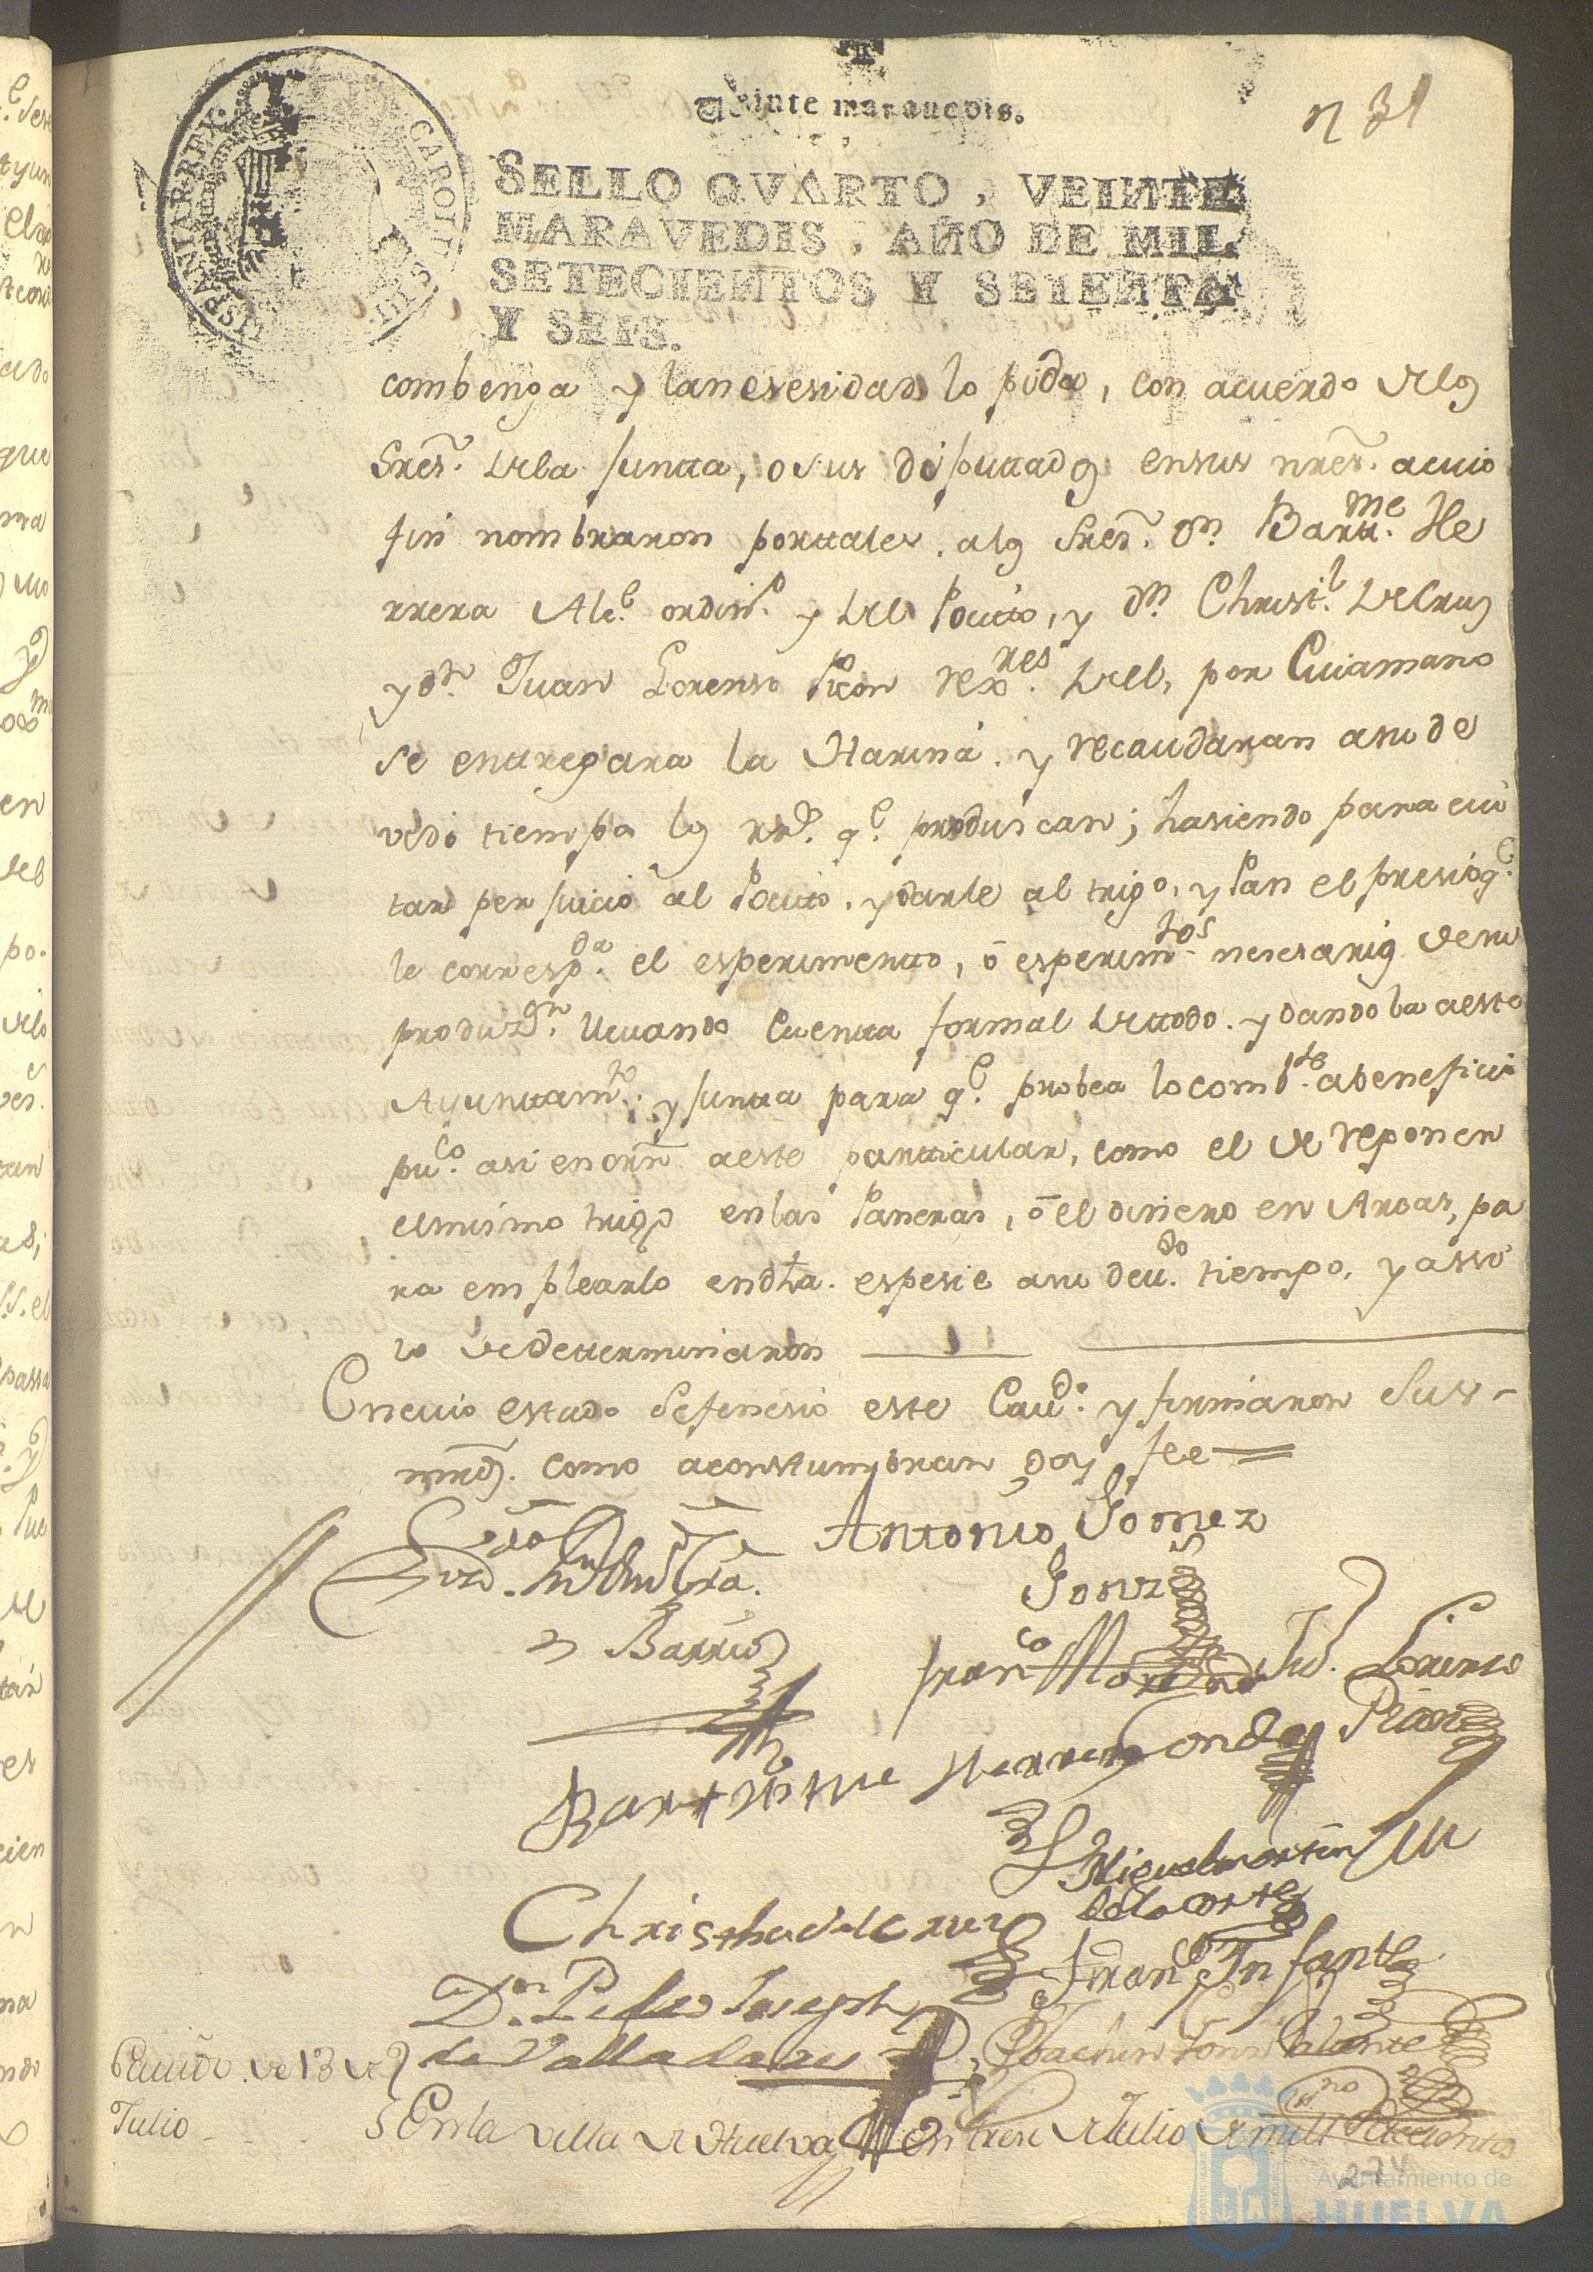 Veinte maravedis.
n 31
HISPANIAR. REX. CAROLUS III.
SELLO QVARTO, VEINTE
MARAVEDIS, AÑO DE MIL
SETECIENTOS Y SETENTA
Y SEIS.
combenga y la nesesidad lo pida, con acuerdo de los
Sres. de la Junta, o sus Diputtados en sus nres. a cuio
fin nombraron por tales a los Sres. Dn. Bartme. He
rrera Alce. ordino. y del Pocito, y Dn. Christl. de Cruz
y Dn. Juan Lorenso Picon rexres. del, por Cuia mano
se entregara la Harina y recaudaran a su de
vido tiempo los qe. produscan; hasiendo para evi
tar perjuicio al Pocito, y darle al trigo, y Pan el presio qe.
le correspda. el esperimento, ô esperimtos. nesesarios de su
produzn. llevando Cuenta formal de ttodo y dandola a este
Ayunttamto. y Junta para qe. probea lo combte. a beneficio
puco. asi en orn. a este particular, como el de reponer
el mismo trigo en las Paneras, ô el dinero en Arcas, pa
ra emplearlo en dha. espesie a su devdo. tiempo, y asi
lo dedetterminaron
En cuio estado Se fenesio este Cavdo. y firmaron Sus
mrds. como acostumbran doy fee =
Antonio Gomez
Barrios
Gonz
Franco Moreno
Jn. Lorenso
Picon
Bartolome Herrera Conde
Miguel martin
de la corte
Christhoval de Cruz
Franco Infante
Dn. Pedro Joseph
de Valladares
Joachin
Cavildo de 13 de
Julio
En la villa de Huelva en trese de Julio de mill Setecientos
274
Ayuntamiento de
HUELVA